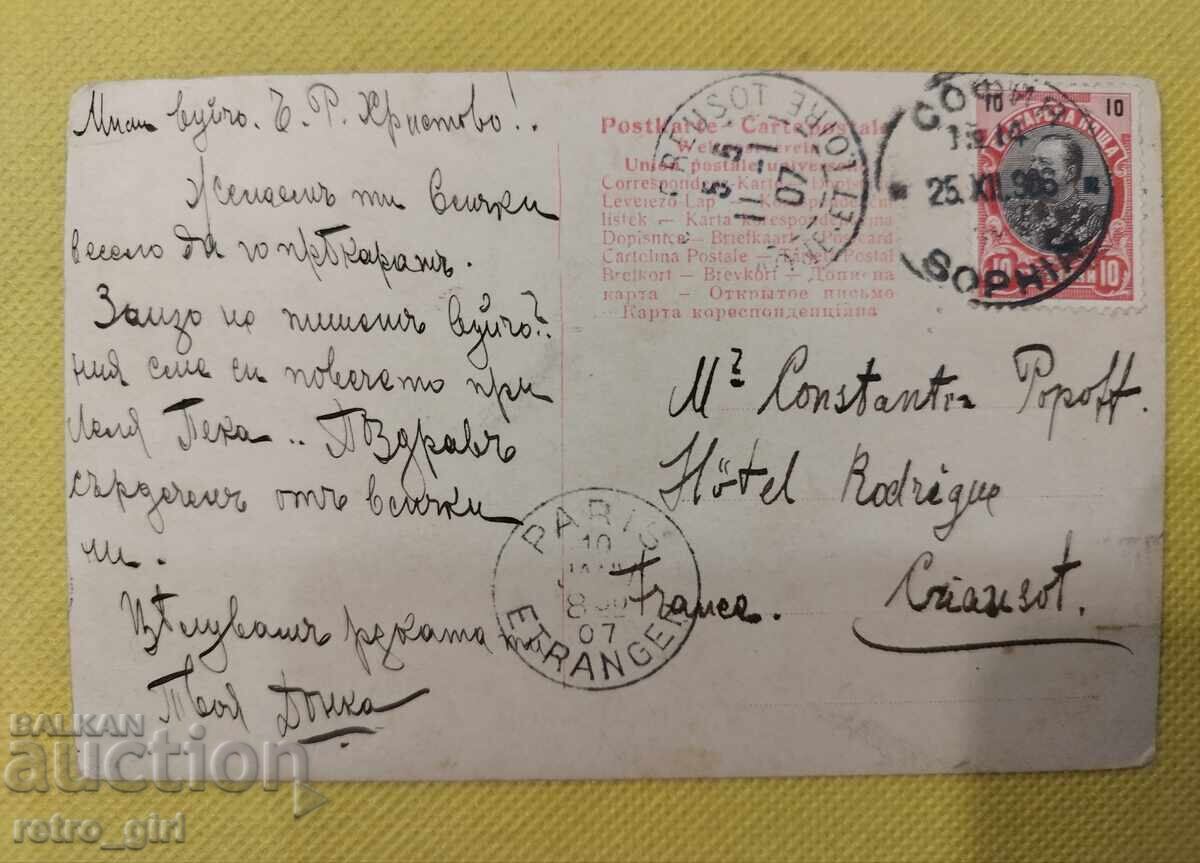 Мили вуйчо. Ч. Р. Христово!..
Желаемъ ти всички
весело да го прѣкарашъ.
Защо не пишешъ вуйчо?..
ния сме си повечето при
леля Пека .. Поздравъ
сърдеченъ отъ всички
ни.
Цѣлувамъ рѫката ти
Твоя Донка
Postkarte - Carte postale
Weltpostverein
Union postale universelle
Correspondenz-Karte - Dopisnice
Levelező-Lap - Korespondenční
lístek - Karta korespondencyjna
Dopisnica - Briefkaart - Postcard
Cartolina Postale - Tarjeta Postal
Brefkort - Brevkort - Дописна
карта - Открытое письмо
Карта кореспонденційна
LE CREUSOT
SAÔNE-ET-LOIRE
5 55
11 -1
07
СОФИЯ
25.XII.906
SOPHIA
10 10
БЪЛГАРСКА ПОЩА
10 10
Mr Constantin Popoff.
Hôtel Rodrigue
France. Criausot.
PARIS
10
JANV
07
ETRANGER
BALKAN
auction
retro_girl